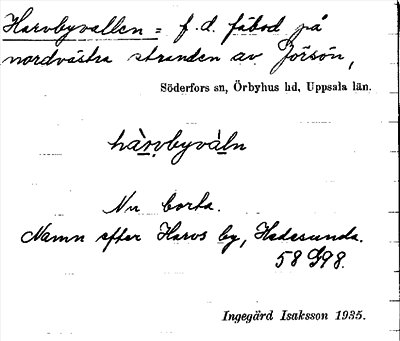 Harvbyvallen = f. d. fäbod på
nordvästra stranden av Jörsön,
Söderfors sn, Örbyhus hd, Uppsala län.
hàrvbyvàln
Nu borta.
Namn efter Harvs by, Hedesunda.
58 G98.
Ingegärd Isaksson 1935.